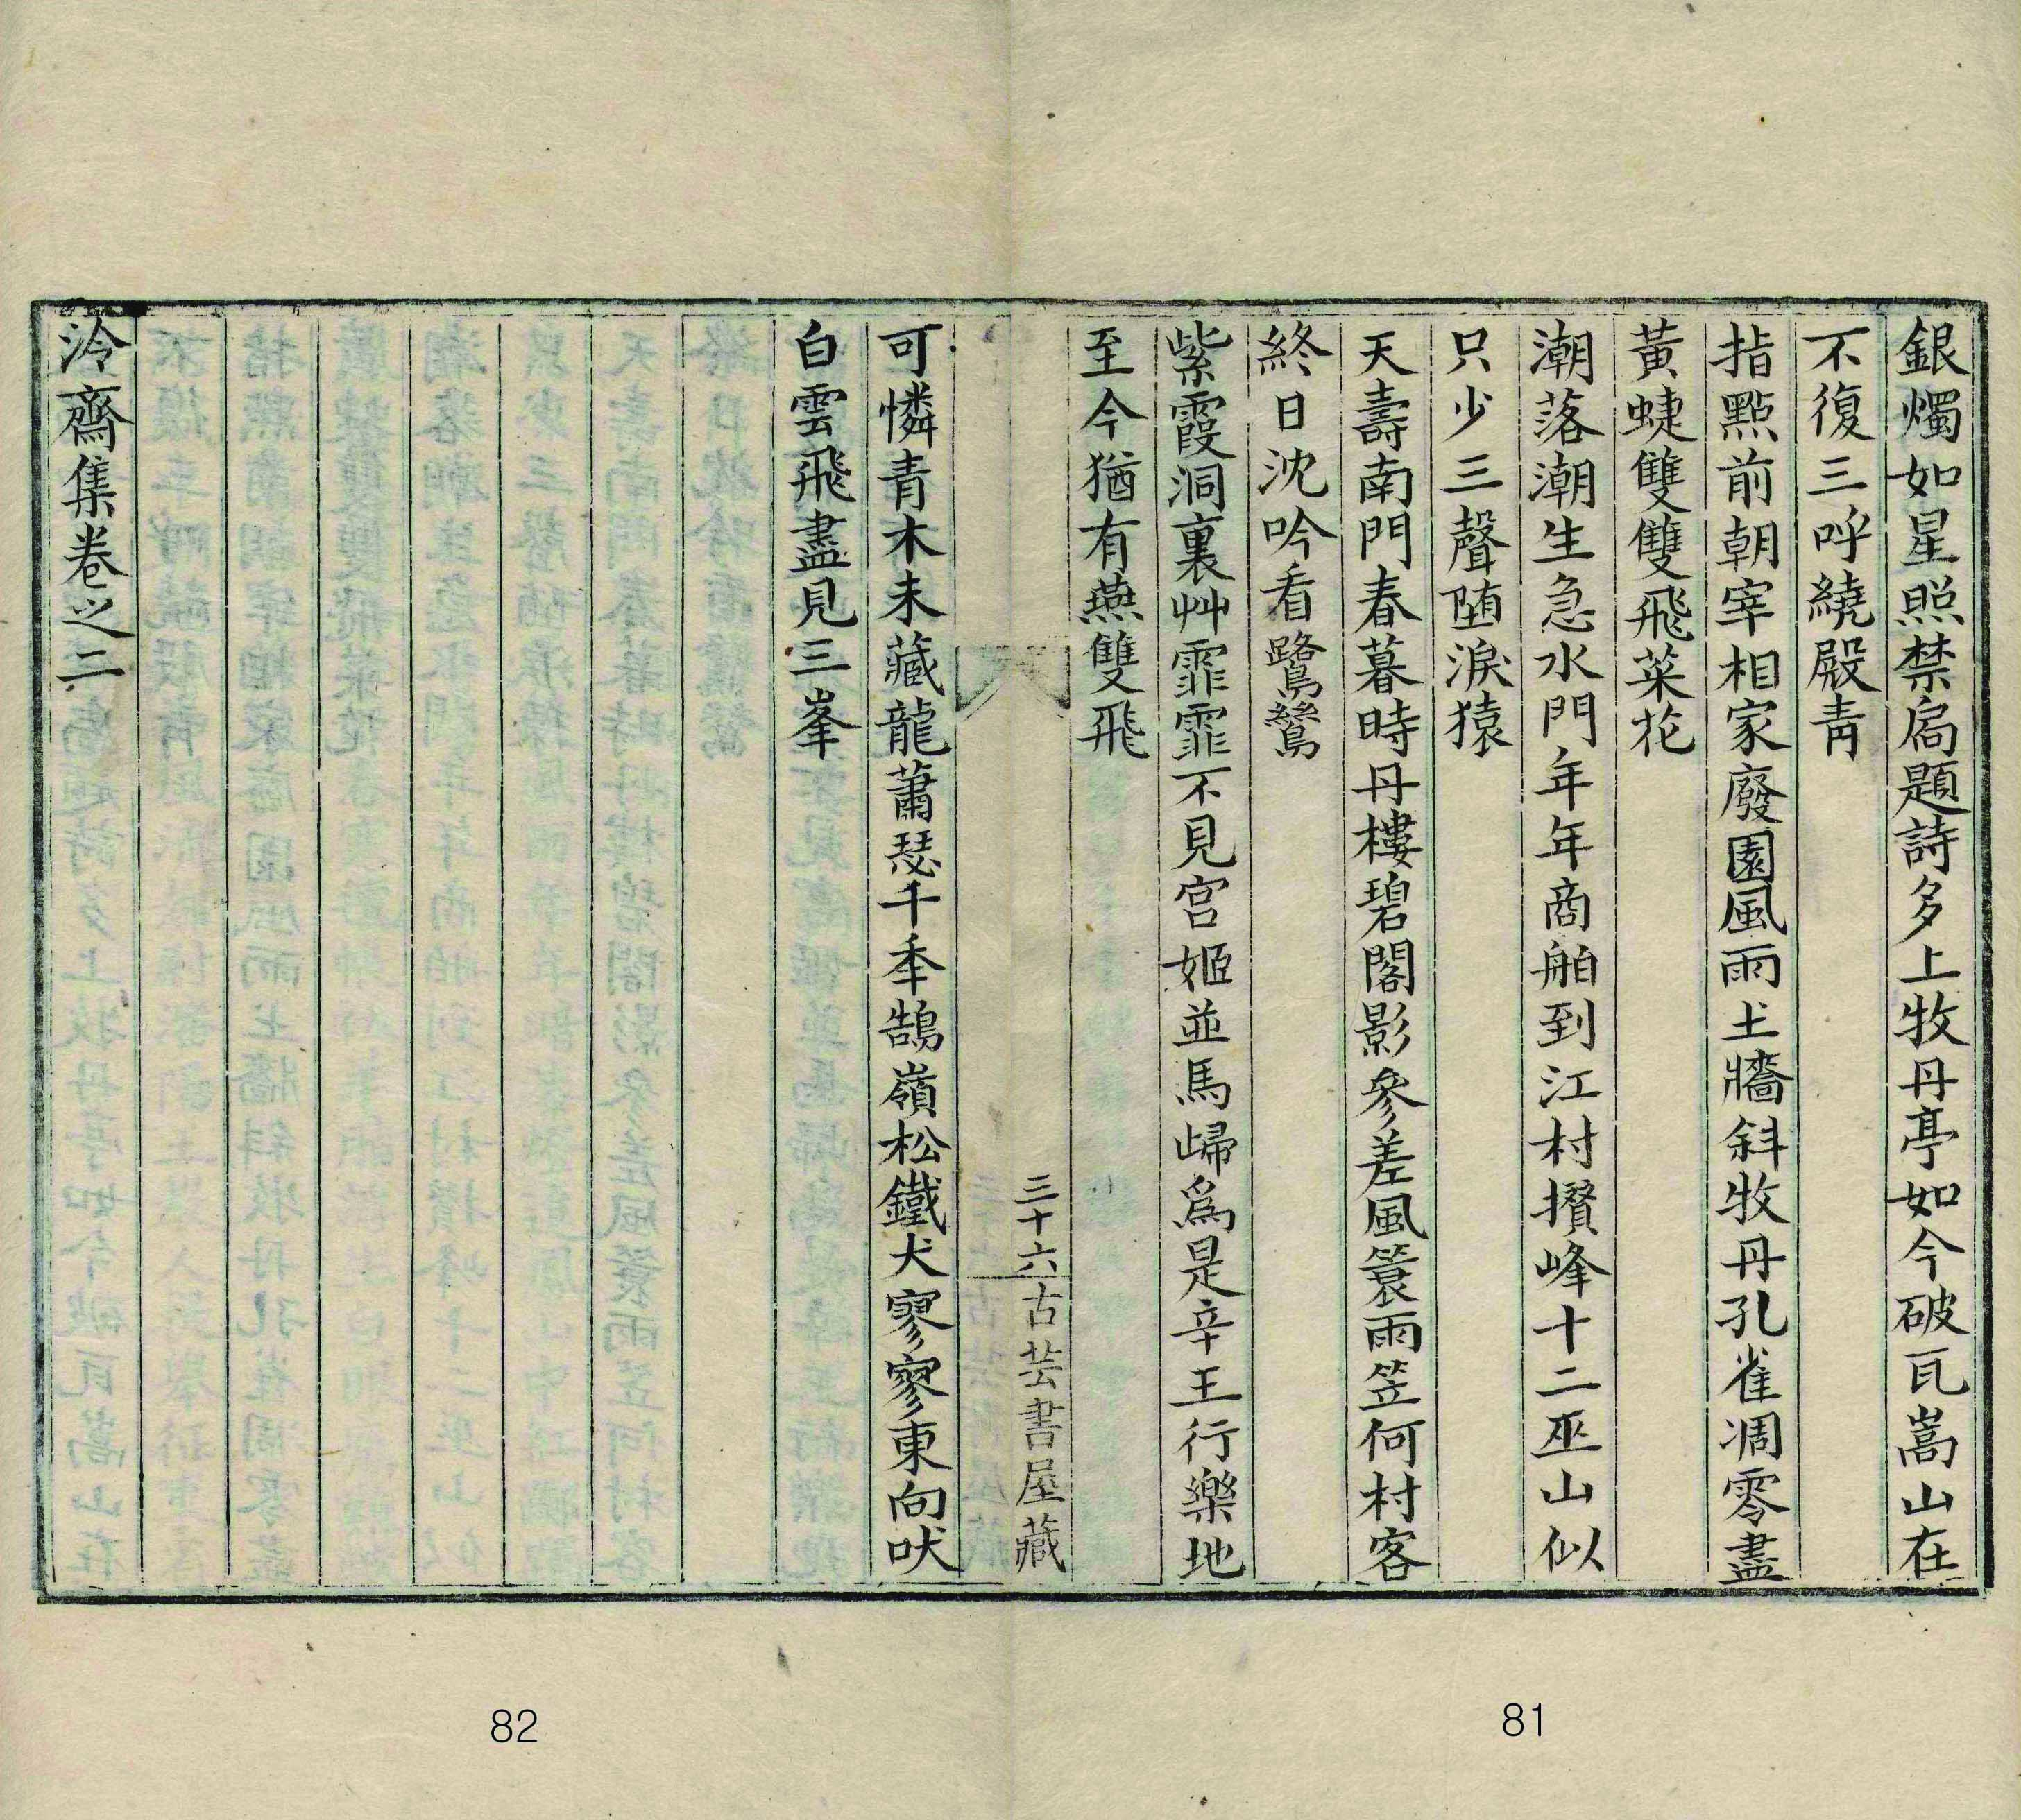 銀燭如星照禁扄題詩多上牧丹亭如今破瓦嵩山在
不復三呼繞殿青
指點前朝宰相家廢園風雨土牆斜牧丹孔雀凋零盡
黃蜨雙雙飛菜花
潮落潮生急水門年年商舶到江村攢峰十二巫山似
只少三聲墮淚猿
天壽南門春暮時丹樓碧閣影參差風簑雨笠何村客
終日沈吟看鷺鷥
紫霞洞裏艸霏霏不見宮姬並馬歸爲是辛王行樂地
至今猶有燕雙飛
三十六
古芸書屋藏
可憐青木未藏龍蕭瑟千秊鵠嶺松鐵犬寥寥東向吠
白雲飛盡見三峯
泠齋集卷之二
81
82